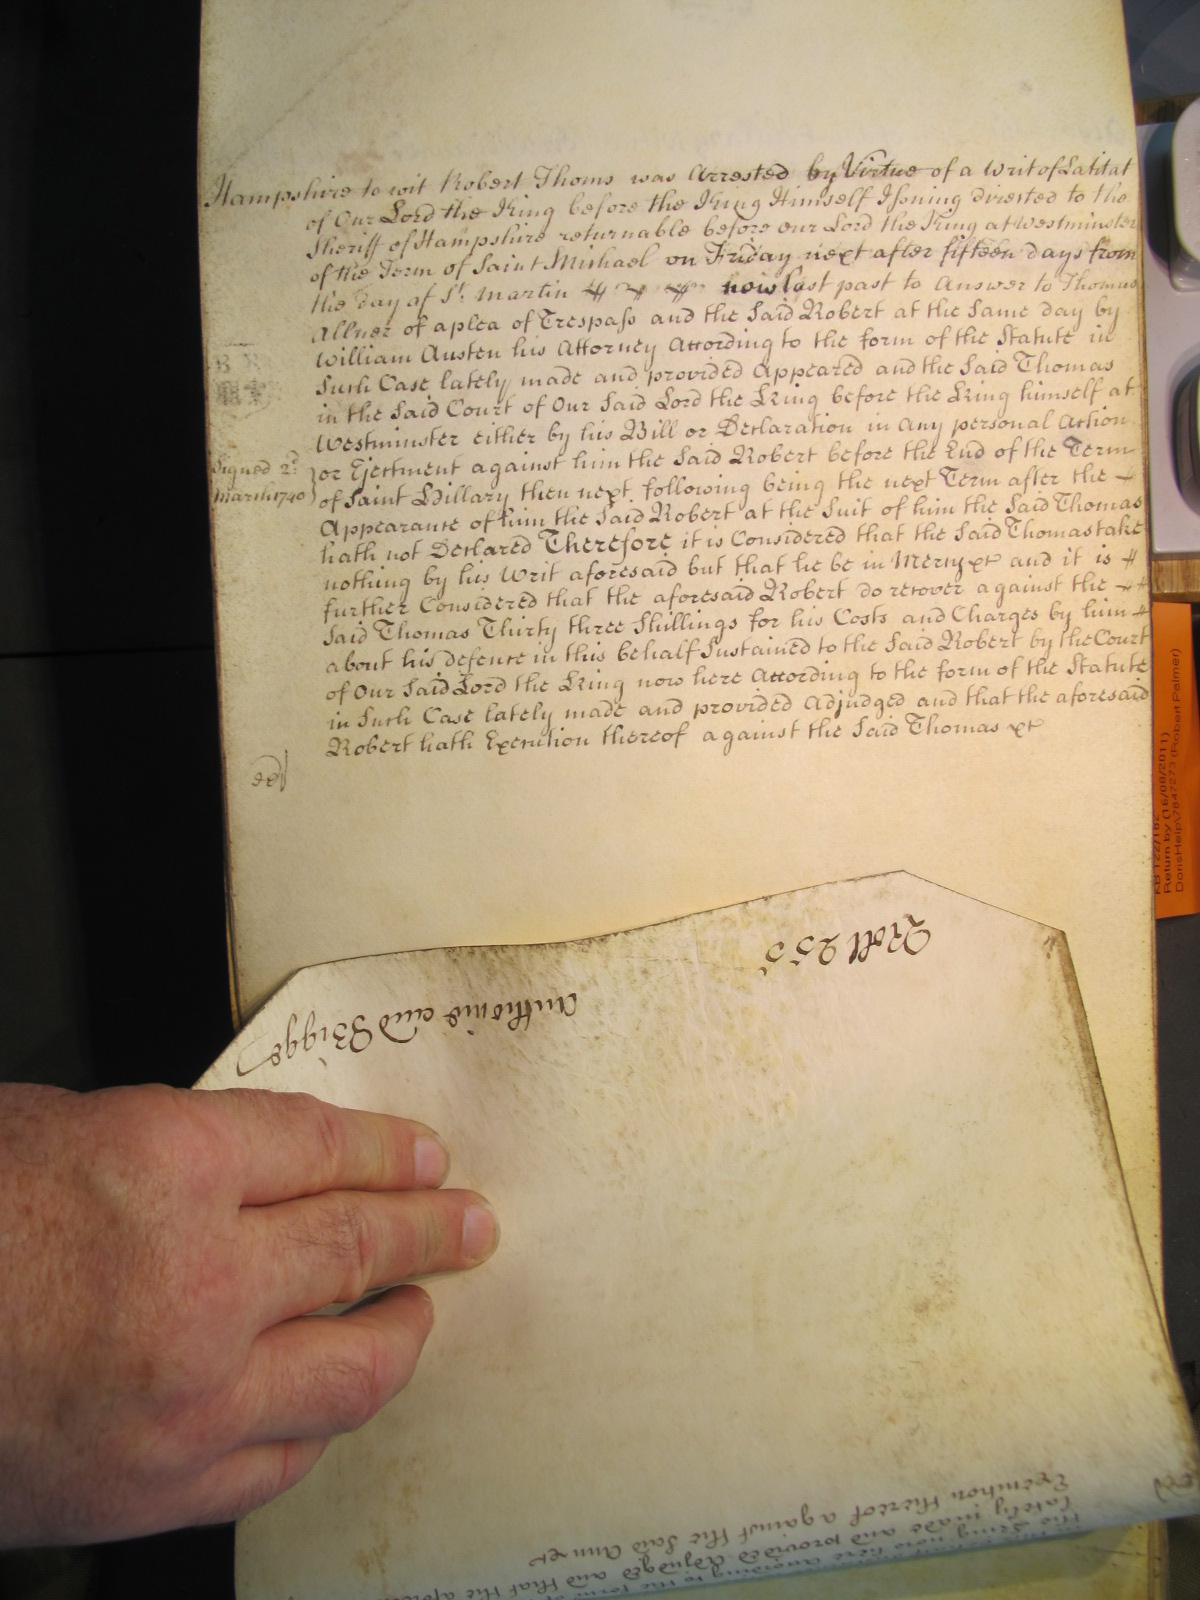 Hampshire to wit Robert Thoms was Arrested by Virtue of a Writ of Latitat
of Our Lord the King before the King Himself Issuing directed to the
Sheriff of Hampshire returnable before our Lord the King at Westminster
of the Term of Saint Michael on Friday next after fifteen days from
the day of St. Martin now last past to Answer to Thomas
Allner of a plea of Trespass and the Said Robert at the Same day by
William Austen his Attorney According to the form of the Statute in
Such Case lately made and provided Appeared and the Said Thomas
in the Said Court of Our Said Lord the King before the King himself at
Westminster either by his Bill or Declaration in any personal Action
Signed 2d. or Ejectment against him the Said Robert before the End of the Term
March 1740 of Saint Hillary then next following being the next Term after the
Appearance of him the Said Robert at the Suit of him the Said Thomas
hath not Declared Therefore it is Considered that the Said Thomas take
nothing by his Writ aforesaid but that he be in Mercy &c and it is
further Considered that the aforesaid Robert do recover against the
Said Thomas Thirty three Shillings for his Costs and Charges by him
about his defence in this behalf Sustained to the Said Robert by the Court
of Our Said Lord the King now here According to the form of the Statute
in Such Case lately made and provided Adjudged and that the aforesaid
Robert hath Execution thereof against the Said Thomas &c
Roll 255
Anthonie and Bigge
Execution thereof against the Said Ann &c
lately made and provided Adjudged and that the
KB 122/182
Return by (16/09/2011)
DorisHelp\7847273 (Robert Palmer)